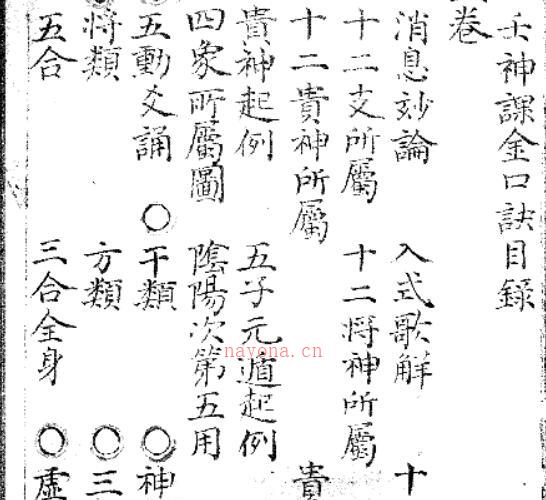 壬神課金口訣目錄
卷
消息妙論 入式歌解 十
十二支所屬 十二將神所屬
十二貴神所屬 貴
貴神起例 五子元遁起例
四象所屬圖 陰陽次第五用
五動爻誦 ○干類 ○神
將類 方類 ○三
五合 三合全身 ○虛
nayona.cn